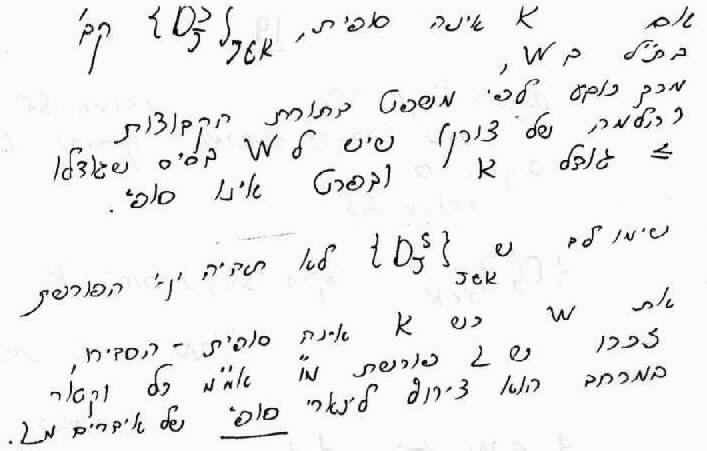 אם K אינה סופית, {D_J^S}_{J∈K} קב'
בת"ל ב W,
מכך נובע לפי משפט בתורת הקבוצות
(הלמה של צורן) שיש ל W בסיס שגודלו
≥ גודל K ובפרט אינו סופי.
שימו לב ש {D_J^S}_{J∈K} לא תהיה הפורשת
את W כש K אינה סופית - הסבירו,
זכרו ש L פורשת מ"ו אמ"מ כל וקטור
במרחב הוא צירוף לינארי סופי של איברים מ L.